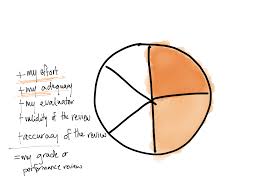 + my effort
+ my adequacy
+ my evaluator
+ validity of the review
+ accuracy of the review
= my grade or
performance review